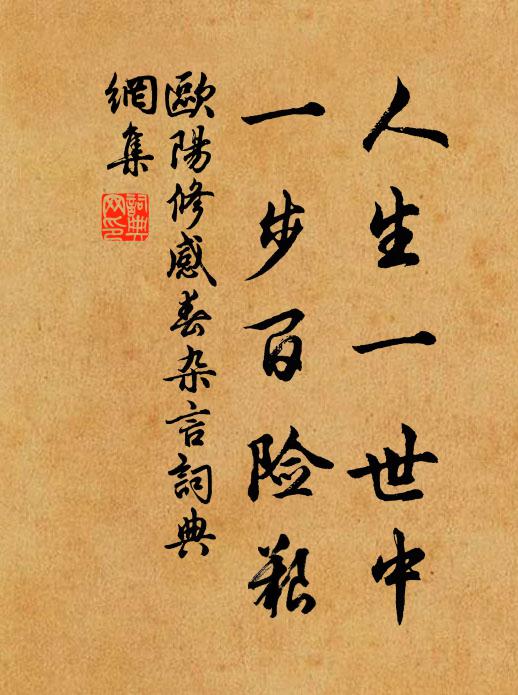 人生一世中
一步百险艰
歐陽修感春杂言詞典
網集
詞典
网印